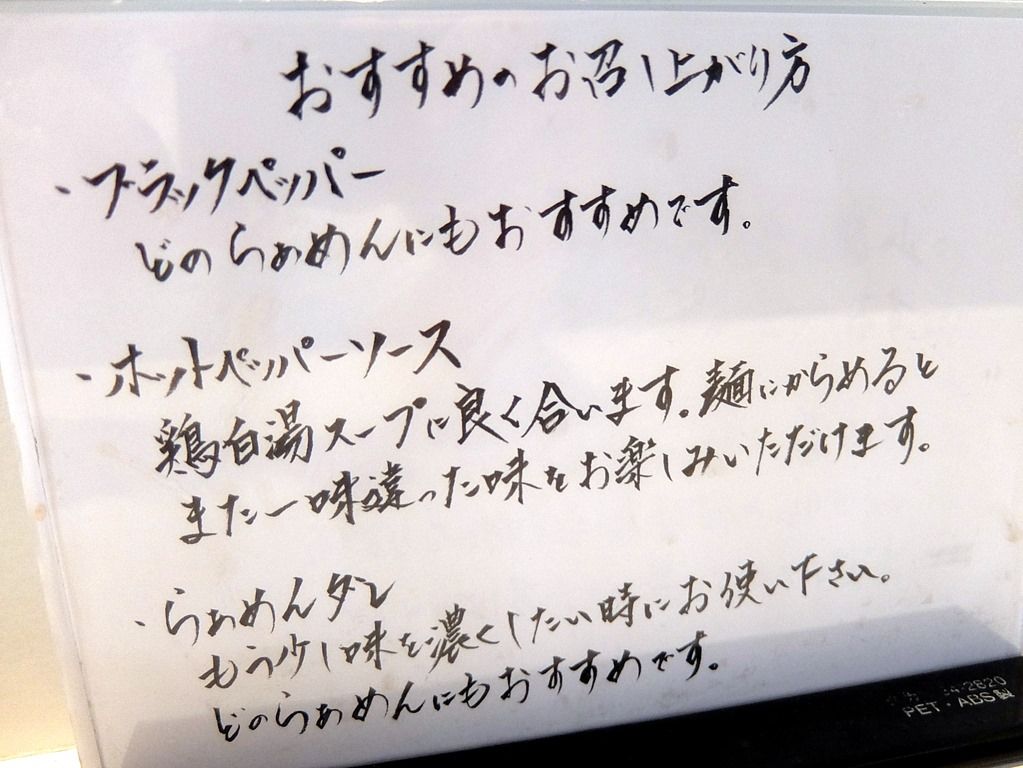 おすすめのお召し上がり方
・ブラックペッパー
どのらぁめんにもおすすめです。
・ホットペッパーソース
鶏白湯スープに良く合います。麺にからめると
また一味違った味をお楽しみいただけます。
・らぁめんダレ
もう少し味を濃くしたい時にお使い下さい。
どのらぁめんにもおすすめです。
-2820
PET・ABS製